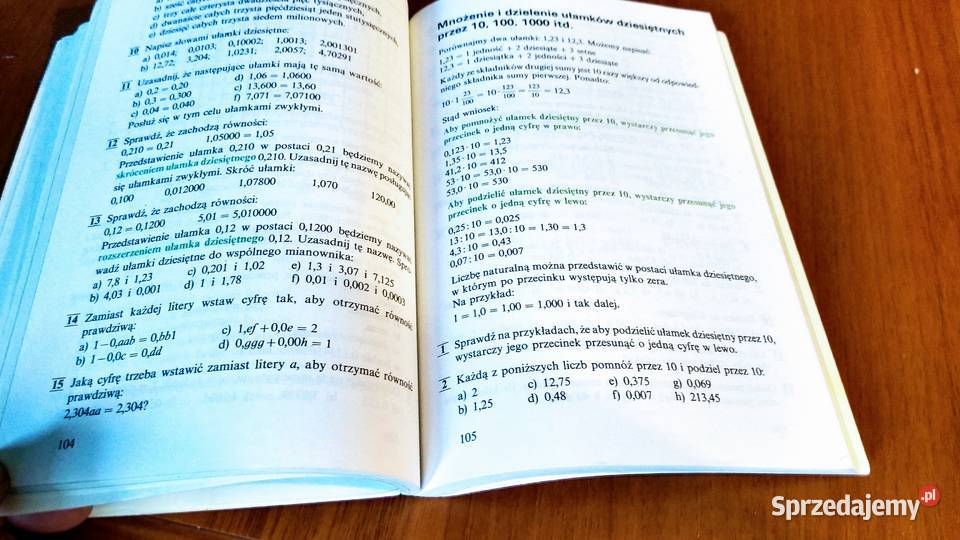 b) sześć całych czterysta dwadzieścia pięć tysięcznych,
c) trzy całe czterysta pięćdziesiąt jeden stutysięcznych,
d) dwanaście całych trzysta
e) dziesięć całych trzysta siedem milionowych.
10 Napisz słowami ułamki dziesiętne:
a) 0,014; 0,0103; 0,10002; 1,0013; 2,001301
b) 12,72; 3,204; 1,0231; 2,0057; 4,70291
11 Uzasadnij, że następujące ułamki mają tę samą wartość:
a) 0,2 = 0,20 d) 1,06 = 1,0600
b) 0,3 = 0,300 e) 13,600 = 13,60
c) 0,04 = 0,040 f) 7,071 = 7,07100
Posłuż się w tym celu ułamkami zwykłymi.
12 Sprawdź, że zachodzą równości:
0,210 = 0,21 1,05000 = 1,05
Przedstawienie ułamka 0,210 w postaci 0,21 będziemy nazywać
skróceniem ułamka dziesiętnego 0,210. Uzasadnij tę nazwę posługując
się ułamkami zwykłymi. Skróć ułamki:
0,100 0,012000 1,07800 1,070 120,00
13 Sprawdź, że zachodzą równości:
0,12 = 0,1200 5,01 = 5,010000
Przedstawienie ułamka 0,12 w postaci 0,1200 będziemy nazywać
rozszerzeniem ułamka dziesiętnego 0,12. Uzasadnij tę nazwę. Spro-
wadź ułamki dziesiętne do wspólnego mianownika:
a) 7,8 i 1,23 c) 0,201 i 1,02 e) 1,3 i 3,07 i 7,125
b) 4,03 i 0,001 d) 1 i 1,78 f) 0,01 i 0,002 i 0,0003
14 Zamiast każdej litery wstaw cyfrę tak, aby otrzymać równość
prawdziwą:
a) 1−0,aab = 0,bb1 c) 1,ef+0,0e = 2
b) 1−0,0c = 0,dd d) 0,ggg+0,00h = 1
15 Jaką cyfrę trzeba wstawić zamiast litery a, aby otrzymać równość
prawdziwą:
2,304aa = 2,304?
104
Mnożenie i dzielenie ułamków dziesiętnych
przez 10, 100, 1000 itd.
Porównajmy dwa ułamki: 1,23 i 12,3. Możemy napisać:
1,23 = 1 jedność + 2 dziesiąte + 3 setne
12,3 = 1 dziesiątka + 2 jedności + 3 dziesiąte
Każdy ze składników drugiej sumy jest 10 razy większy od odpowied-
niego składnika sumy pierwszej. Ponadto:
10·1 23/100 = 10·123/100 = 123/10 = 12,3
Stąd wniosek:
Aby pomnożyć ułamek dziesiętny przez 10, wystarczy przesunąć jego
przecinek o jedną cyfrę w prawo:
0,123·10 = 1,23
1,35·10 = 13,5
41,2·10 = 412
53·10 = 53,0·10 = 530
53,0·10 = 530
Aby podzielić ułamek dziesiętny przez 10, wystarczy przesunąć jego
przecinek o jedną cyfrę w lewo:
0,25:10 = 0,025
13:10 = 13,0:10 = 1,30 = 1,3
4,3:10 = 0,43
0,07:10 = 0,007
Liczbę naturalną można przedstawić w postaci ułamka dziesiętnego,
w którym po przecinku występują tylko zera.
Na przykład:
1 = 1,0 = 1,00 = 1,000 i tak dalej.
1 Sprawdź na przykładach, że aby podzielić ułamek dziesiętny przez 10,
wystarczy jego przecinek przesunąć o jedną cyfrę w lewo.
2 Każdą z poniższych liczb pomnóż przez 10 i podziel przez 10:
a) 2 c) 12,75 e) 0,375 g) 0,069
b) 1,25 d) 0,48 f) 0,007 h) 213,45
105
Sprzedajemy.pl